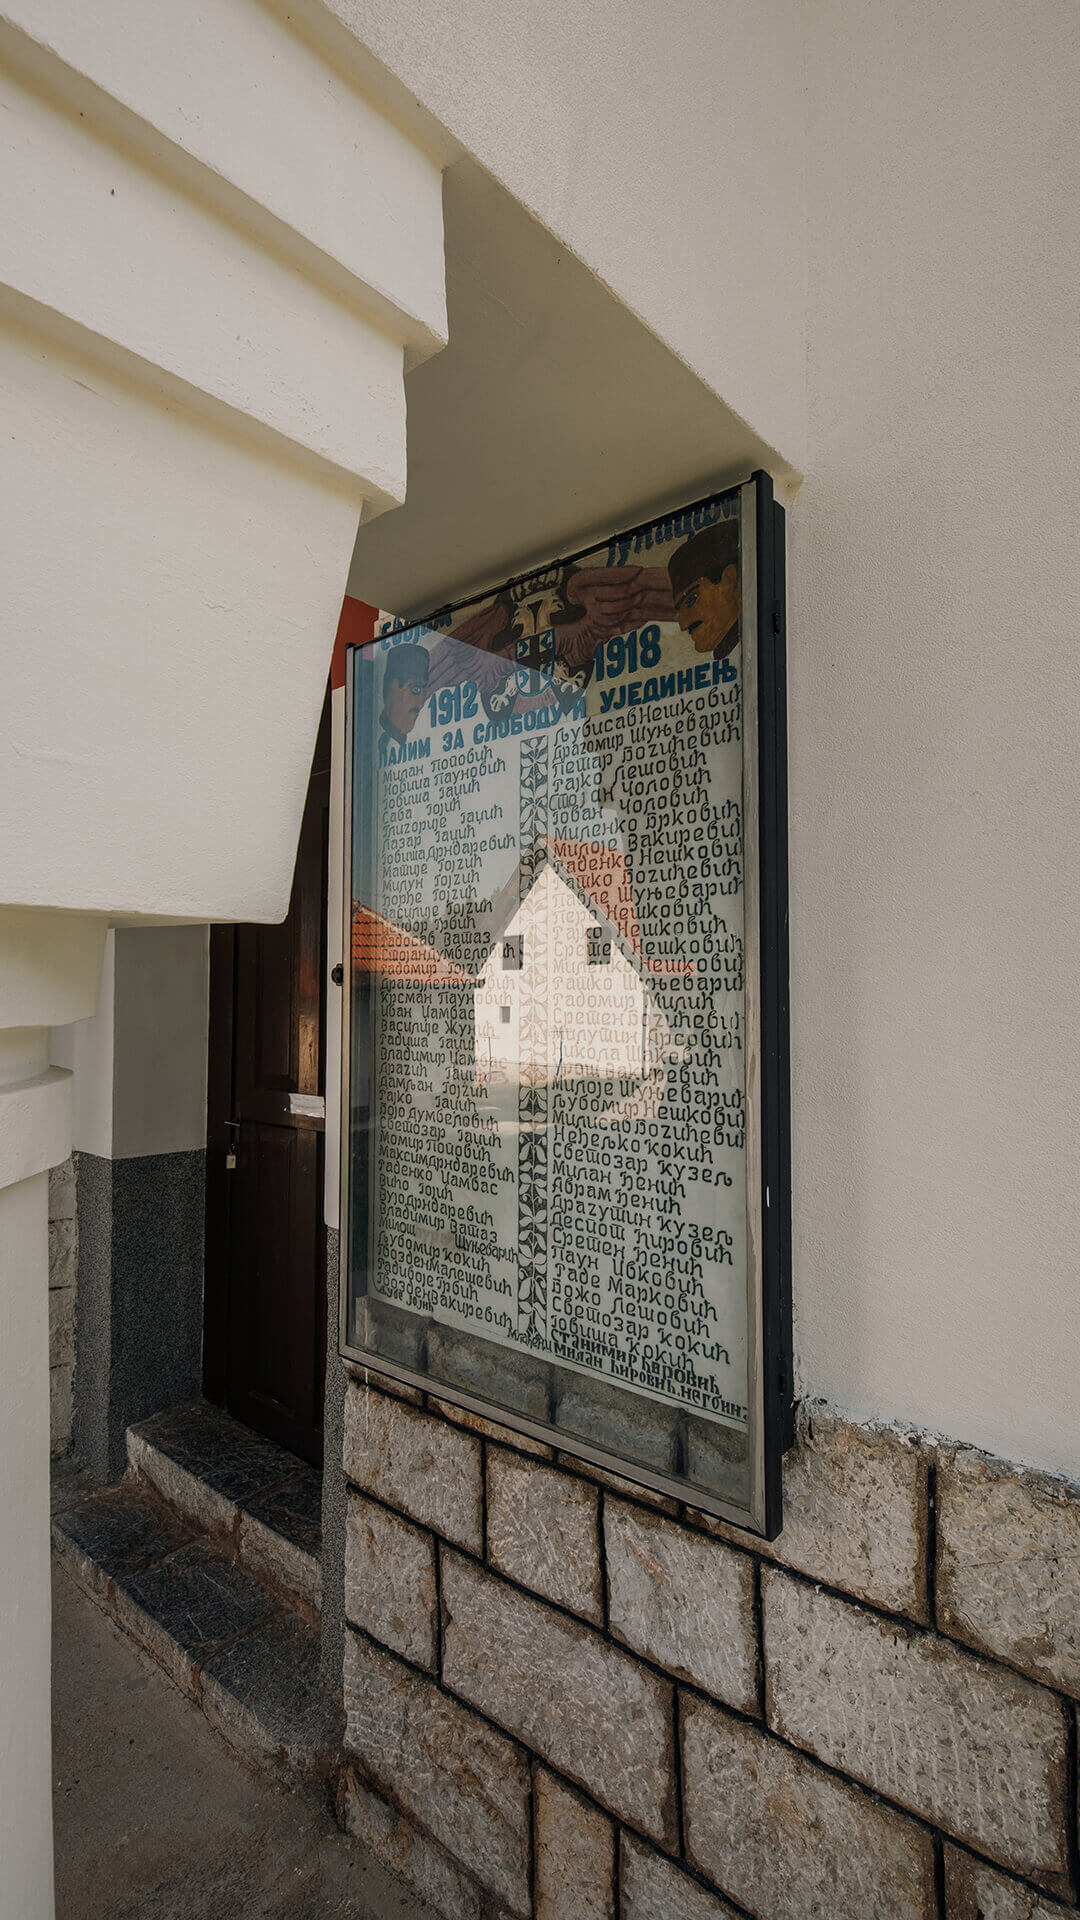 својим
јунацима
1912
1918
ПАЛИМ ЗА СЛОБОДУ И УЈЕДИЊЕЊ
Милан Поповић
Новица Пауновић
Јовиша Гаџић
Сава Гојић
Глигорије Гаџић
Лазар Гаџић
Јовиша Дрндаревић
Матије Гојгић
Милун Гојгић
Ђорђе Гојгић
Василије Гојгић
Грбић
Радосав Ватаз
Стојан Думбеловић
Радомир
Драгојле Пауновић
Крсман
Иван Џамбас
Василије
Радиша Гаџић
Владимир Џамбас
Драгић Гаџић
Дамљан Гојгић
Рајко Гаџић
Војо Думбеловић
Светозар Гаџић
Момир Поповић
Максим Дрндаревић
Раденко Џамбас
Вићо Гојић
Вујо Дрндаревић
Владимир Ватаз
Милош Шуњеварић
Љубомир Кокић
Гвозден Малешевић
Радивоје Грбић
Гвозден Вакиревић
Љубисав Нешковић
Драгомир Шуњеварић
Петар Богићевић
Рајко Лешовић
Стојан Чоловић
Јован Чоловић
Миленко Брковић
Милоје Вакиревић
Раденко Нешковић
Рашко Богићевић
Павле Шуњеварић
Нешковић
Нешковић
Сретен Нешковић
Миленко Нешковић
Рашко Шуњеварић
Радомир Милић
Сретен Богићевић
Милутин Арсовић
Никола Шаковић
Урош Вакиревић
Милоје Шуњеварић
Љубомир Нешковић
Милисав Богићевић
Неђељко Кокић
Светозар Кузељ
Милан Ђенић
Аврам Ђенић
Драгутин Кузељ
Деспот Ћировић
Сретен Ђенић
Паун Ивковић
Раде Марковић
Божо Лешовић
Светозар Кокић
Јовиша Кокић
Станимир Ћировић
Милан Ћировић.Негбина